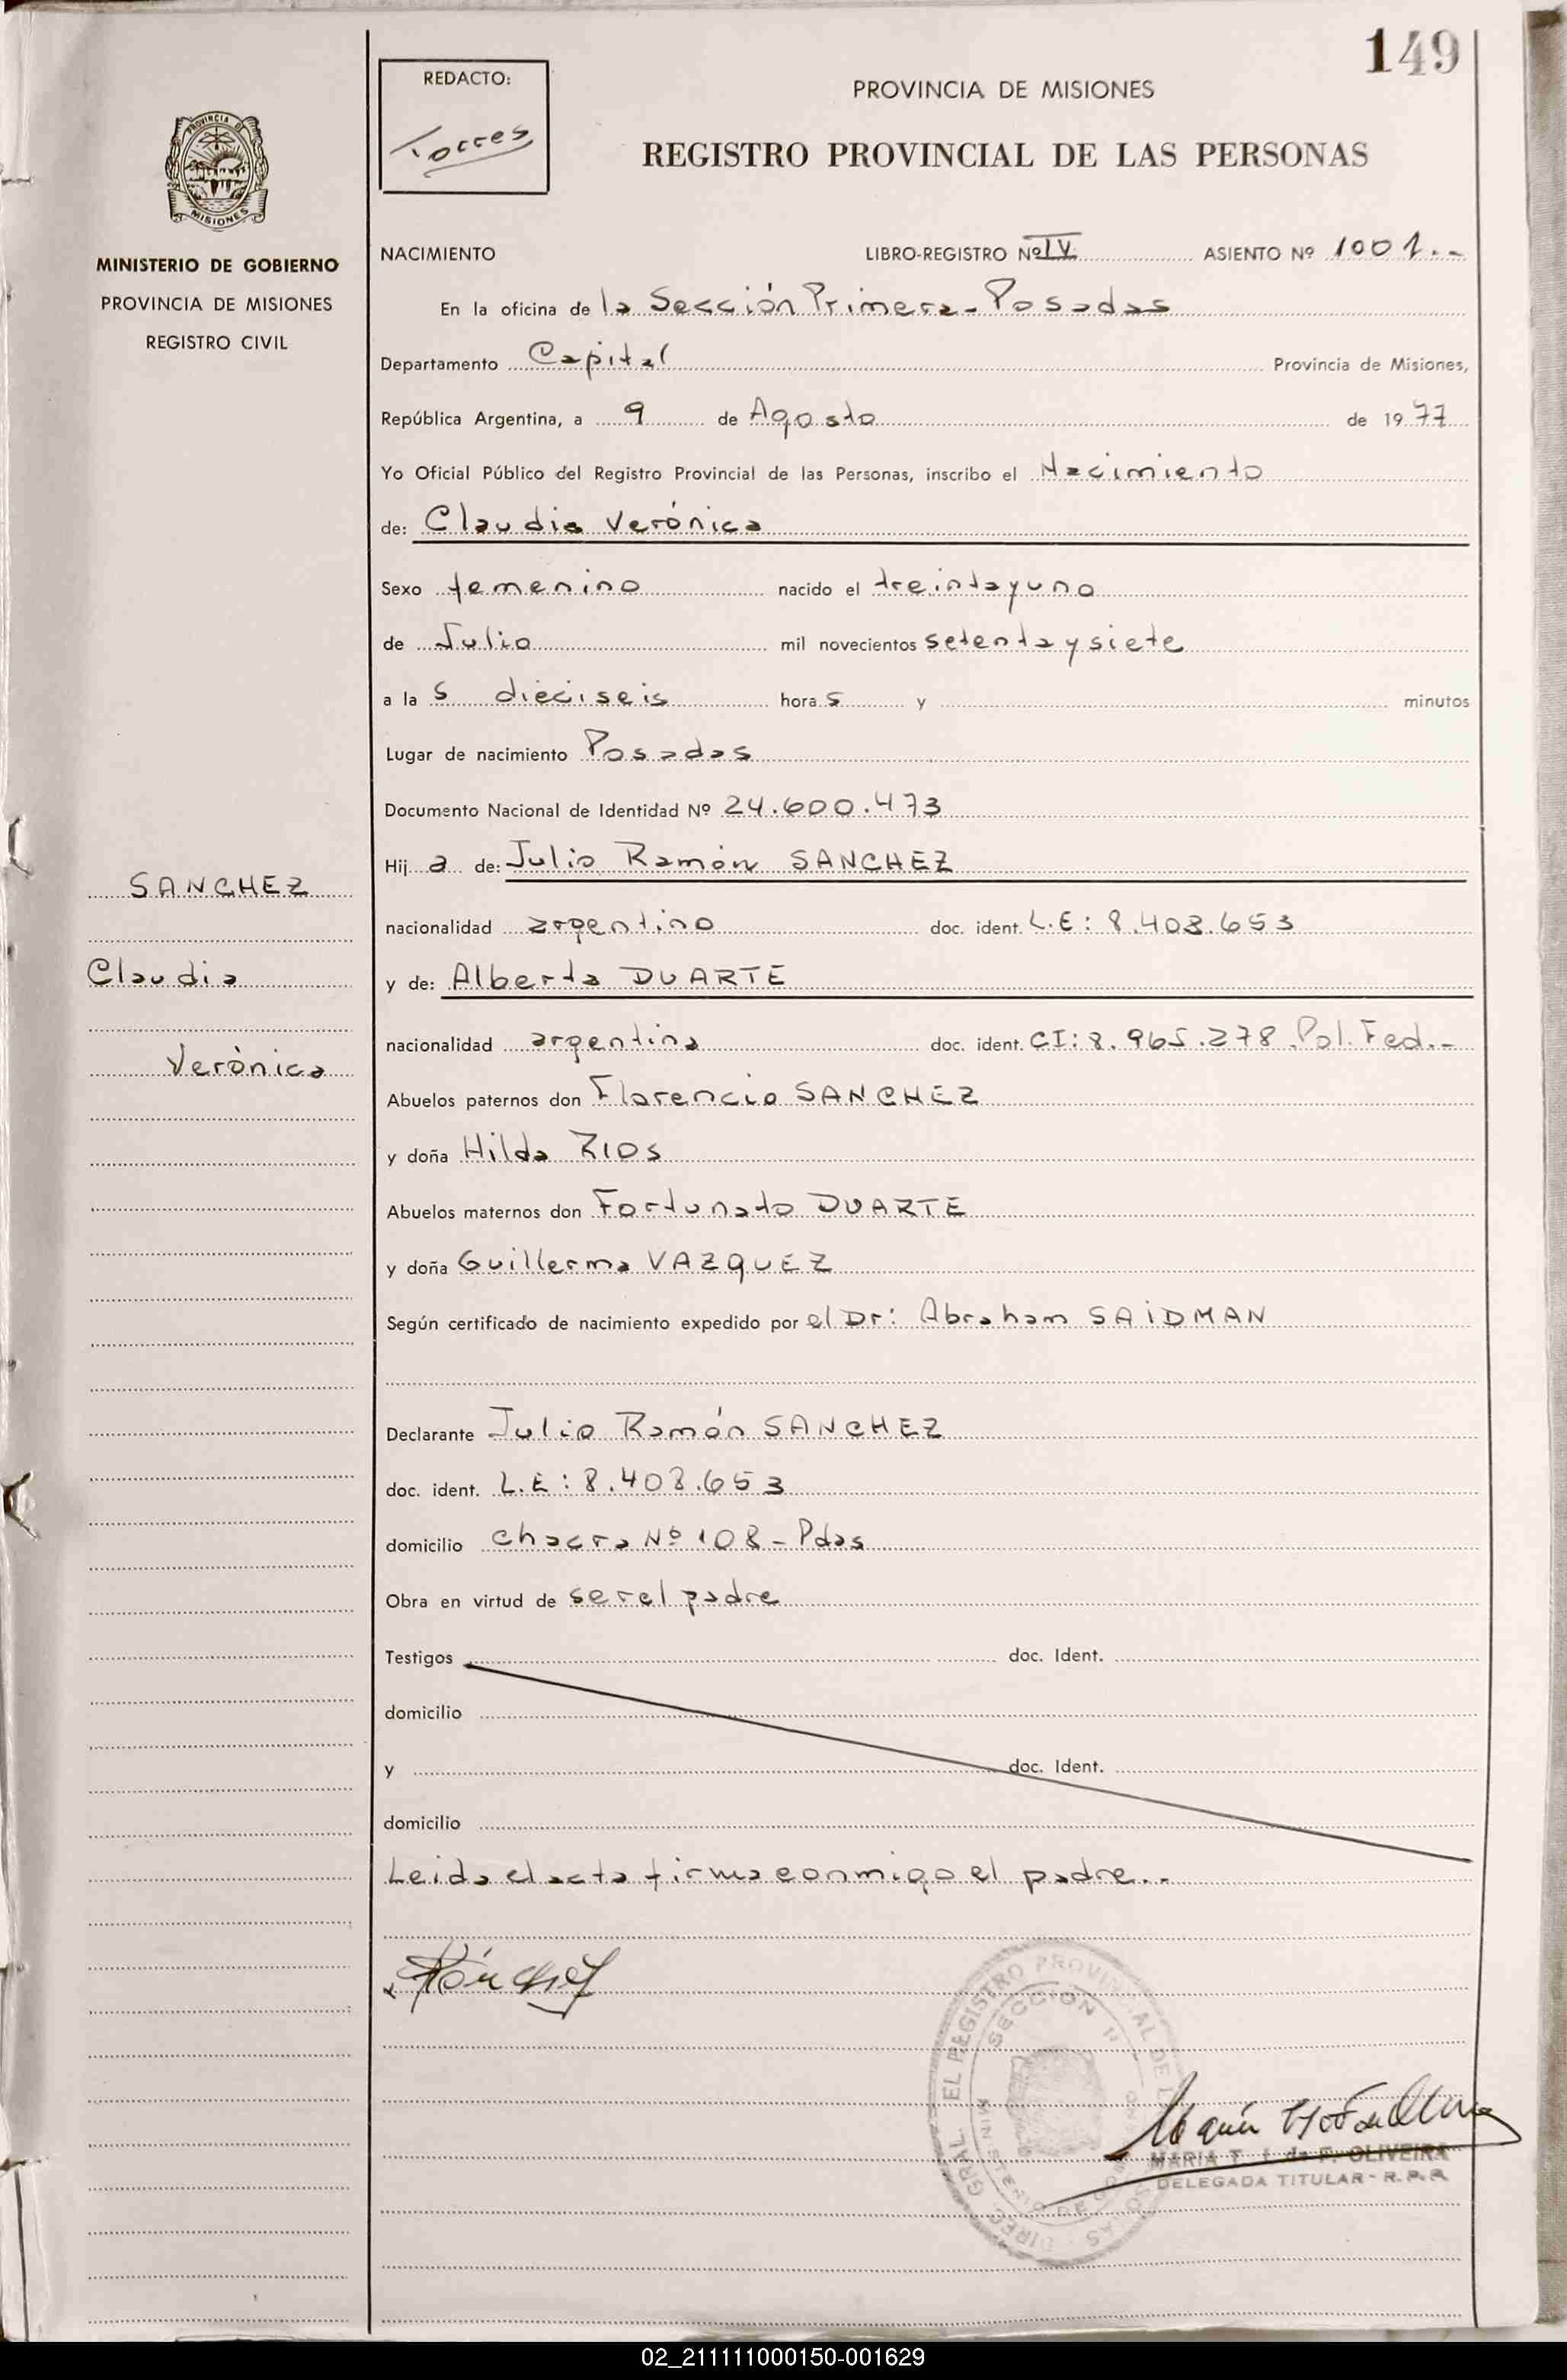 149
REDACTO:
Torres
PROVINCIA DE MISIONES
REGISTRO PROVINCIAL DE LAS PERSONAS
PROVINCIA DE
MISIONES
MINISTERIO DE GOBIERNO
PROVINCIA DE MISIONES
REGISTRO CIVIL
NACIMIENTO LIBRO-REGISTRO Nº IV ASIENTO Nº 1001.--
En la oficina de la Sección Primera - Posadas
Departamento Capital Provincia de Misiones,
República Argentina, a 9 de Agosto de 1977
Yo Oficial Público del Registro Provincial de las Personas, inscribo el Nacimiento
de: Claudia Verónica
Sexo femenino nacido el treinta y uno
de Julio mil novecientos setenta y siete
a las dieciseis horas y minutos
Lugar de nacimiento Posadas
Documento Nacional de Identidad Nº 24.600.473
Hija de: Julio Ramón SANCHEZ
SANCHEZ
nacionalidad argentino doc. ident. L.E: 8.408.653
Claudia
y de: Alberta DUARTE
Verónica
nacionalidad argentina doc. ident. CI: 8.965.278 Pol. Fed.-
Abuelos paternos don Florencio SANCHEZ
y doña Hilda RIOS
Abuelos maternos don Fortunato DUARTE
y doña Guillerma VAZQUEZ
Según certificado de nacimiento expedido por el Dr: Abraham SAIDMAN
Declarante Julio Ramón SANCHEZ
doc. ident. L.E: 8.408.653
domicilio Chacra Nº 108 - Pdas
Obra en virtud de ser el padre
Testigos doc. Ident.
domicilio
y doc. Ident.
domicilio
Leida el acta firma conmigo el padre.-
Sánchez
DIREC. GRAL. EL REGISTRO PROVINCIAL DE L SONAS
SECCION 1ª
MINISTERIO DE GOBIERNO
MARIA T. de F. OLIVEIRA
DELEGADA TITULAR - R.P.P.
02_211111000150-001629